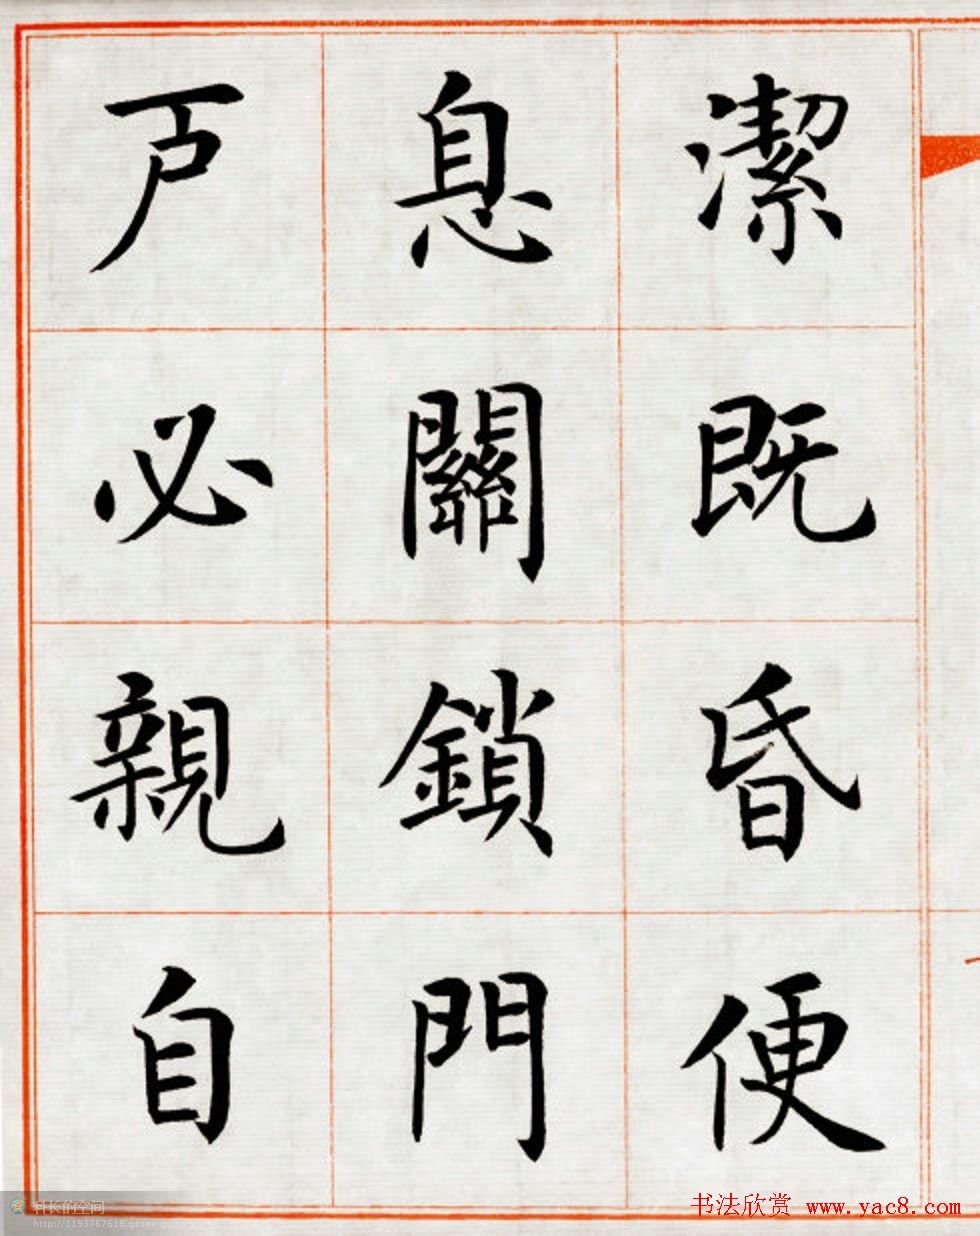 潔既昏便
息關鎖門
戶必親自
科长的空间
http://1193767618.qzone.qq.com
书法欣赏 www.yac8.com